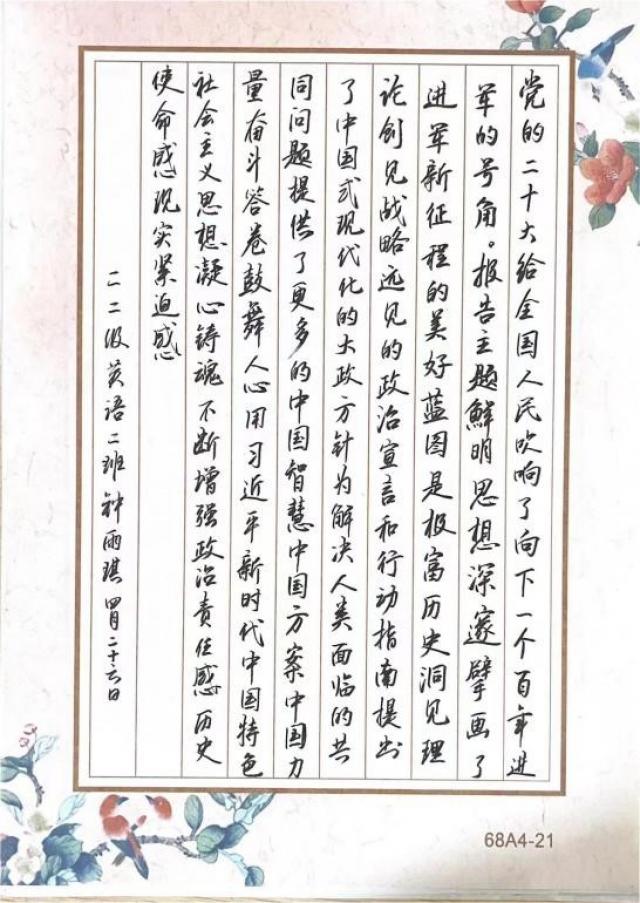 党的二十大给全国人民吹响了向下一个百年进
军的号角。报告主题鲜明思想深邃擘画了
进军新征程的美好蓝图是极富历史洞见理
论创见战略远见的政治宣言和行动指南提出
了中国式现代化的大政方针为解决人类面临的共
同问题提供了更多的中国智慧中国方案中国力
量奋斗答卷鼓舞人心用习近平新时代中国特色
社会主义思想凝心铸魂不断增强政治责任感历史
使命感现实紧迫感
二二级英语二班钟雨琪四月二十六日
68A4-21